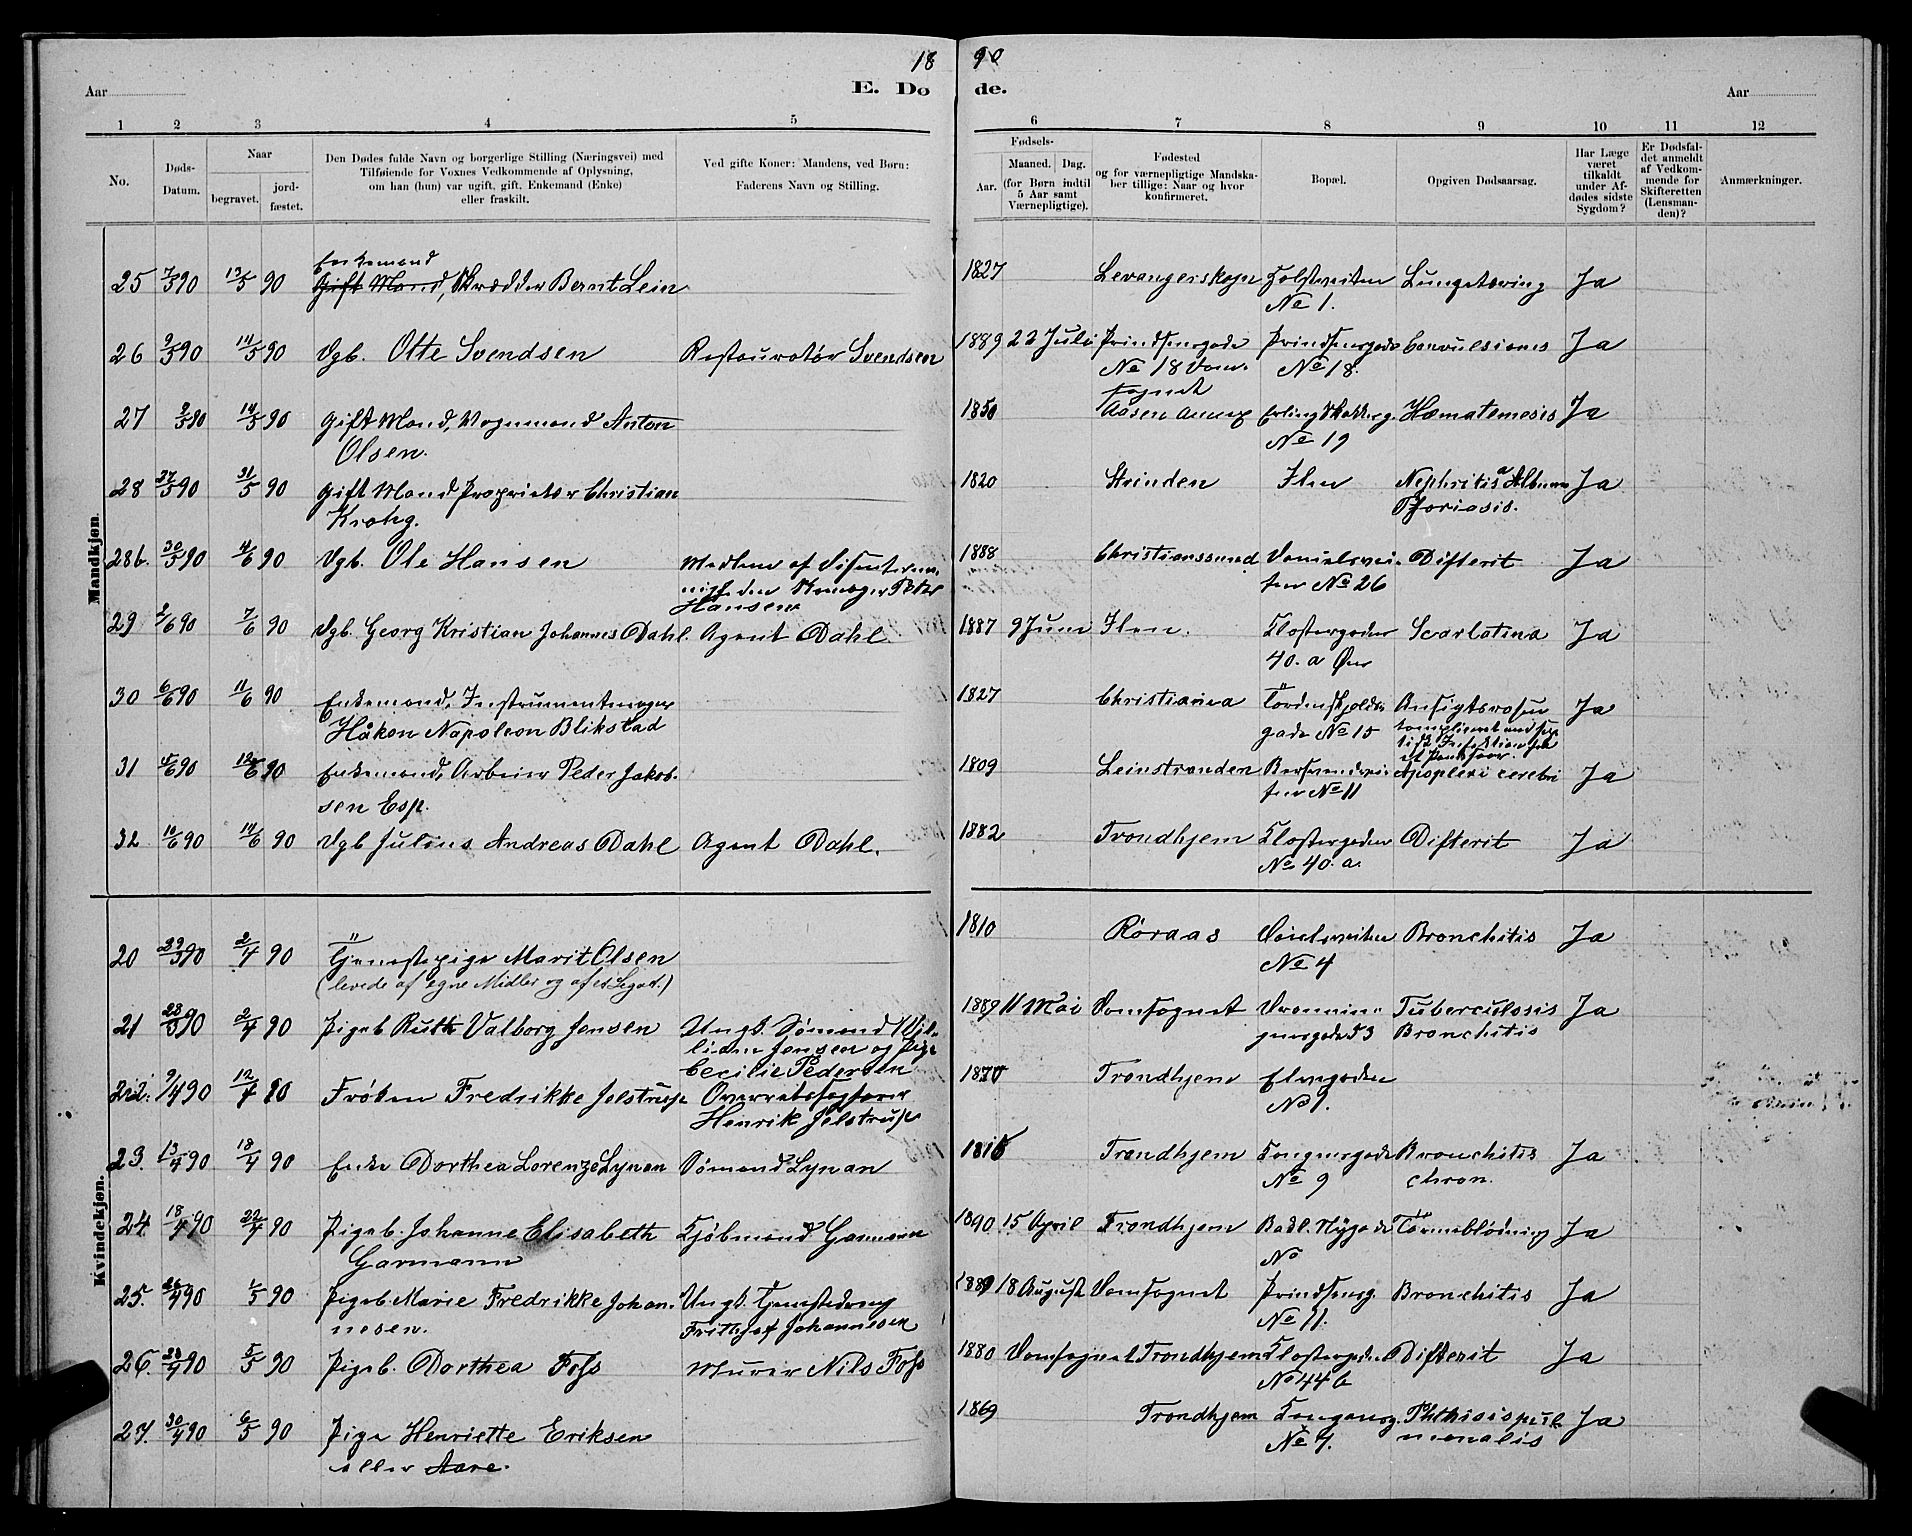 18 90
Aar
E. Dø
de.
Aar
1 2 3 4 5 6 7 8 9 10 11 12
No.
Døds-
Datum.
Naar
begravet.
jord-
fæstet.
Den Dødes fulde Navn og borgerlige Stilling (Næringsvei) med
Tilføiende for Voxnes Vedkommende af Oplysning,
om han (hun) var ugift, gift, Enkemand (Enke)
eller fraskilt.
Ved gifte Koner: Mandens, ved Børn:
Faderens Navn og Stilling.
Fødsels-
Aar.
Maaned. Dag.
(for Børn indtil
5 Aar samt
Værnepligtige).
Fødested
og for værnepligtige Mandska-
ber tillige: Naar og hvor
konfirmeret.
Bopæl.
Opgiven Dødsaarsag.
Har Læge
været
tilkaldt
under Af-
dødes sidste
Sygdom?
Er Dødsfal-
det anmeldt
af Vedkom-
mende for
Skifteretten
(Lensman-
den)?
Anmærkninger.
Mandkjøn.
Enkemand
25 7/5 90 13/5 90 Gift Mand, Skrædder Bernt Lein 1827 Levangerskogn Lungetæring Ja
No 1.
26 9/5 90 14/5 90 Vgb. Otte Svendsen Restauratør Svendsen 1889 22 Juli Prindsensgade Prindsensgade Convulsiones Ja
No 18 Dom- No 18.
sognet
27 9/5 90 14/5 90 Gift Mand, Vognmand Anton 1850 Aasen Annex Erling Skakkesg. Hæmatemesis Ja
Olsen. No 19
28 27/5 90 31/5 90 Gift Mand Proprietær Christian 1820 Strinden Ilen Nephritis Ja
Krohg. Psoriasis.
28b. 30/5 90 4/6 90 Vgb. Ole Hansen Medlem af Dissenterme- 1888 Christianssund Danielsvei- Difterit Ja
nigheden Skomager Peter ten No 26
Hansen
29 2/6 90 7/6 90 Vgb. Georg Kristian Johannes Dahl. Agent Dahl 1887 9 Juni Ilen. Klostergaden Scarlatina Ja
40. a Øvr
30 6/6 90 11/6 90 Enkemand, Instrumentmager 1827 Christiania Tordenskjolds Ansigtsrosen Ja
Håkon Napoleon Blikstad gade No 15 compliceret med sep-
tisk Infektion fra
31 4/6 90 12/6 90 Enkemand, Arbeier Peder Jakob- 1809 Leinstranden Apoplexi cerebri Ja
sen Esp. ten No 11
32 10/6 90 14/6 90 Vgb Julius Andreas Dahl Agent Dahl. 1882 Trondhjem Klostergaden Difterit Ja
No 40. a.
Kvindekjøn.
20 29/3 90 2/4 90 Tjenestepige Marit Olsen 1810 Røraas Bronchitis Ja
(levede af egne Midler og af et Legat.) No 4
21 28/3 90 2/4 90 Pigeb Ruth Valborg Jensen Ungk. Sømand Wil- 1889 11 Mai Domsognet Dronnin- Tuberculosis Ja
liam Jensen og Pige gensgade 53 Bronchitis
Cecilie Pedersen
22. 9/4 90 12/4 90 Frøken Fredrikke Jelstrup Overretssagfører 1870 Trondhjem Elvegaden
Henrik Jelstrup No 1.
23. 13/4 90 18/4 90 Enke Dorthea Lorenze Lynan Sømand Lynan 1816 Trondhjem Kongensgade Bronchitis Ja
No 9 chron.
24. 18/4 90 22/4 90 Pigeb. Johanne Elisabeth Kjøbmand Garmann 1890 15 April Trondhjem Bakl. Nygade Tarmeblødning Ja
Garmann No
25. 26/4 90 1/5 90 Pigeb. Marie Fredrikke Johan- Ungk. Tjenestedreng 1889 18 August Domsognet Prindsensg. Bronchitis Ja
nesen. Frithjof Johannesen No 11.
26. 28/4 90 5/5 90 Pigeb. Dorthea Foss Murer Nils Foss 1880 Domsognet Trondhjem Klostergaden Difterit Ja
No 44 b
27. 30/4 90 6/5 90 Pige Henriette Eriksen 1869 Trondhjem Kongensg. Phthisis pul- Ja
eller Aare. No 7. monalis